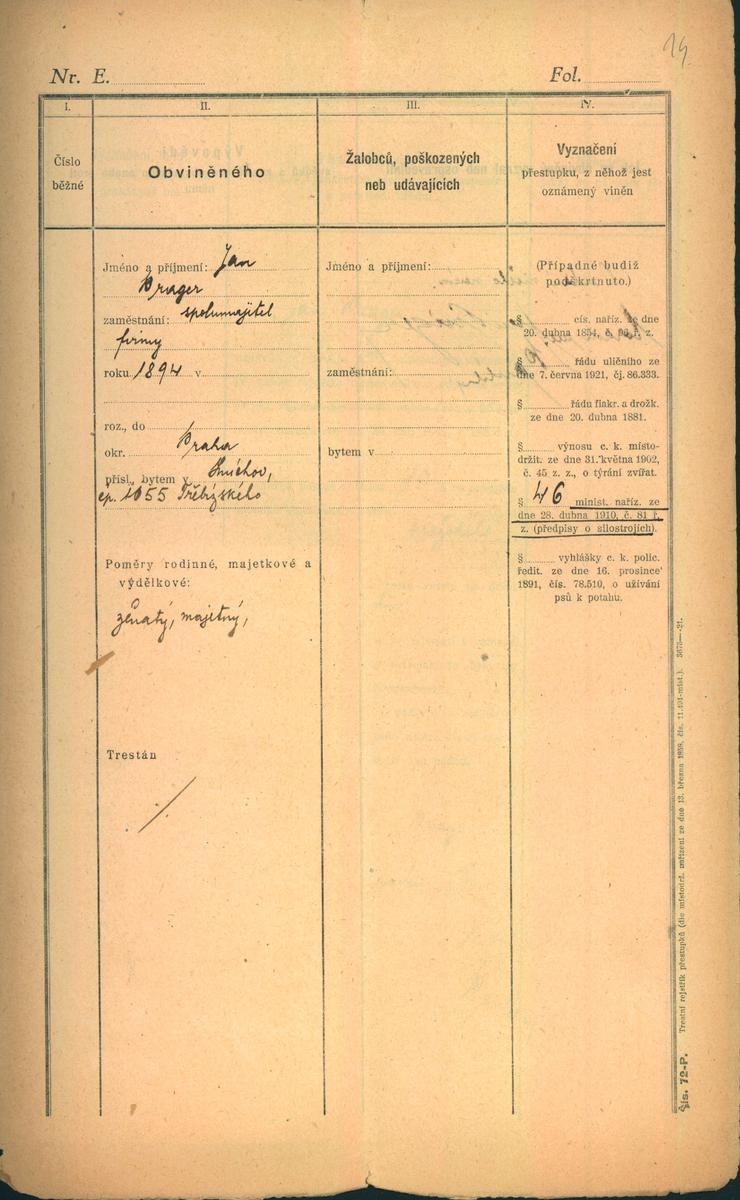 14.
Nr. E.
Fol.
I.
II.
III.
IV.
Číslo
běžné
Obviněného
Žalobců, poškozených
neb udávajících
Vyznačení
přestupku, z něhož jest
oznámený viněn
Jméno a příjmení: Jan
Prager
zaměstnání: spolumajitel
firmy
roku 1894 v
roz., do
okr. Praha
přísl., bytem v Smíchov,
čp. 1055 Třebízského
Poměry rodinné, majetkové a
výdělkové:
ženatý, majetný,
Trestán
Jméno a příjmení:
zaměstnání:
bytem v
(Případné budiž
podškrtnuto.)
§ cís. naříz. ze dne
20. dubna 1854, č. 96 ř. z.
§ řádu uličního ze
dne 7. června 1921, čj. 86.333.
§ řádu fiakr. a drožk.
ze dne 20. dubna 1881.
§ výnosu c. k. místo-
držit. ze dne 31. května 1902,
č. 45 z. z., o týrání zvířat.
§ 46 minist. naříz. ze
dne 28. dubna 1910, č. 81 ř.
z. (předpisy o silostrojích).
§ vyhlášky c. k. polic.
ředit. ze dne 16. prosince
1891, čís. 78.510, o užívání
psů k potahu.
Čís. 72-P. Trestní rejstřík přestupků (dle místodrž. nařízení ze dne 13. března 1898, čís. 11.491-míst.). 3675—21.